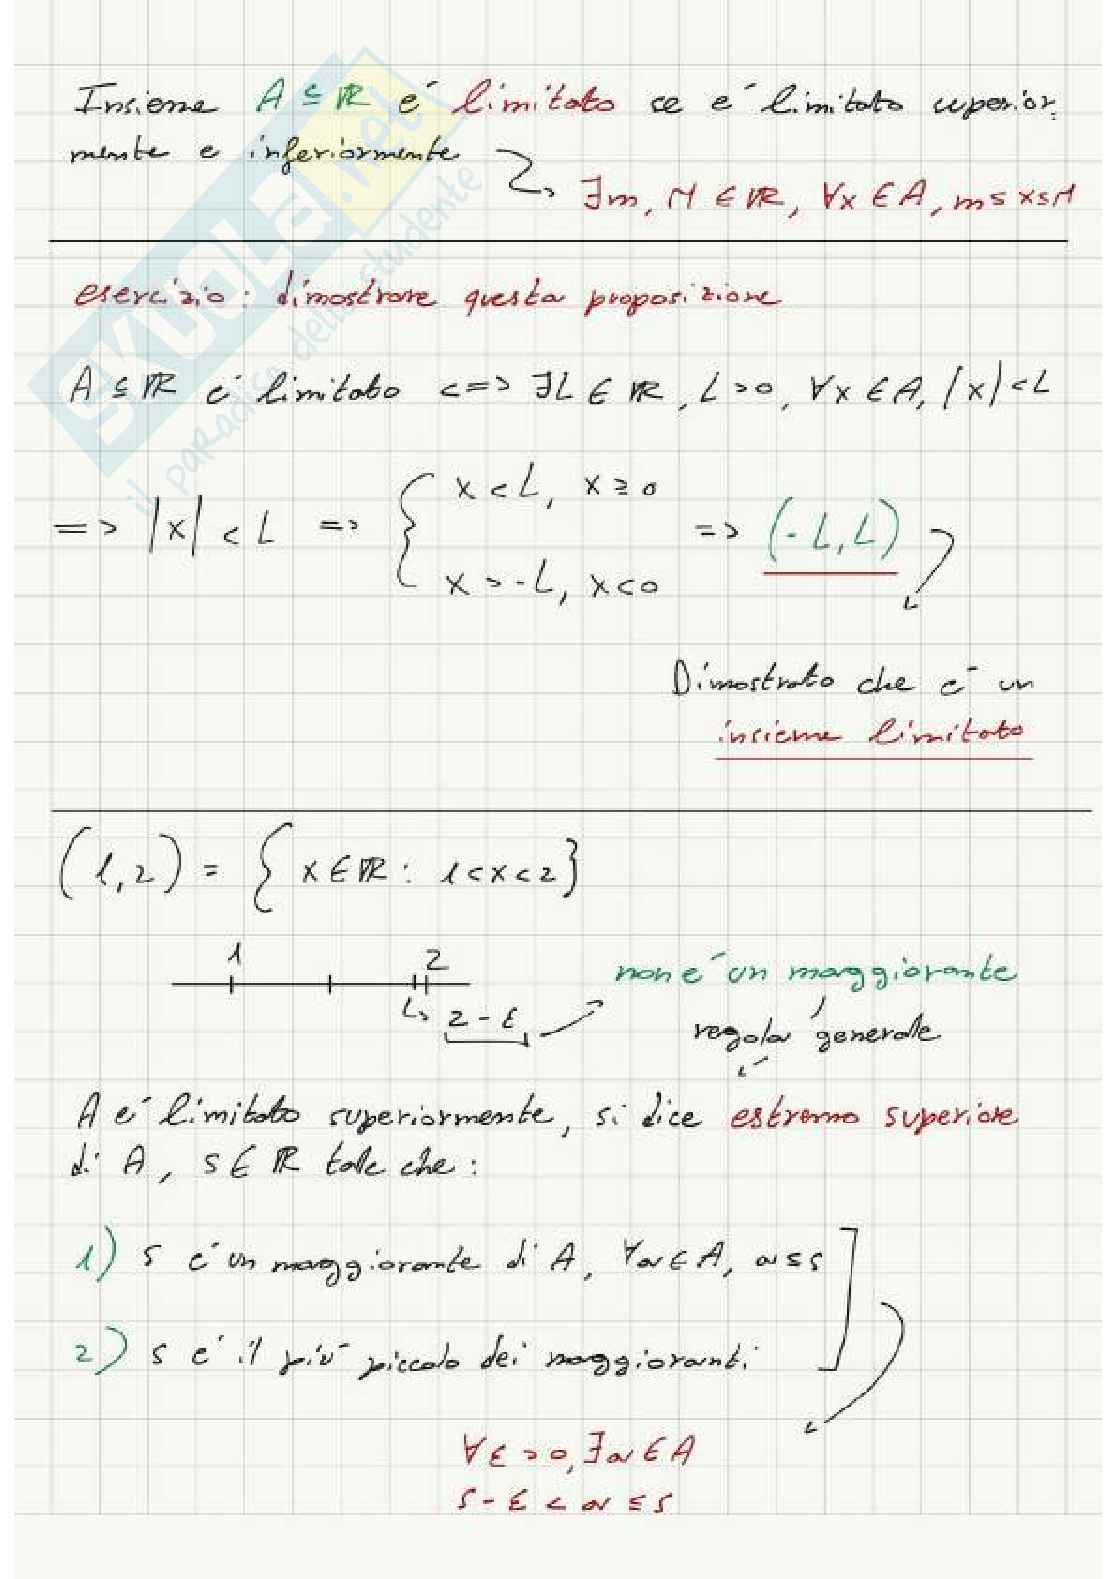 Insieme A ⊆ ℝ é limitato se é limitato superior.
mente e inferiormente
∃m, M ∈ ℝ, ∀x ∈ A, m ≤ x ≤ M
esercizio: dimostrare questa proposizione
A ⊆ ℝ é limitato <=> ∃L ∈ ℝ, L > 0, ∀x ∈ A, |x| < L
=> |x| < L => { x < L, x ≥ 0
x > -L, x < 0
=> (-L, L)
Dimostrato che é un
insieme limitato
(1,2) = { x ∈ ℝ : 1 < x < 2 }
1 2
2 - ε
non é un maggiorante
regola generale
A é limitato superiormente, si dice estremo superiore
di A, s ∈ ℝ tale che:
1) s é un maggiorante di A, ∀a ∈ A, a ≤ s
2) s é il piú piccolo dei maggioranti
∀ε > 0, ∃a ∈ A
s - ε < a ≤ s
SKUOLA.net
il paradiso dello studente